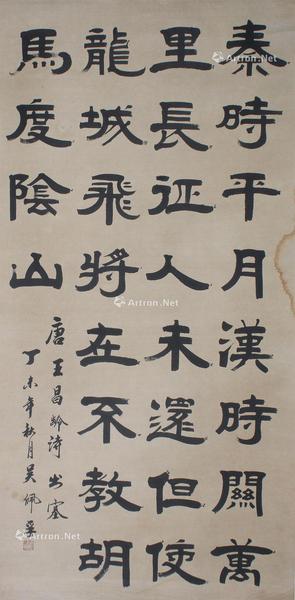 秦時平月漢時關萬
里長征人未還但使
龍城飛將在不教胡
馬度陰山
唐王昌齡詩出塞
丁未年秋月吴佩
Artron.Net
Artron.Net
Artron.Net
Artron.Net
Artron.Net
Artron.Net